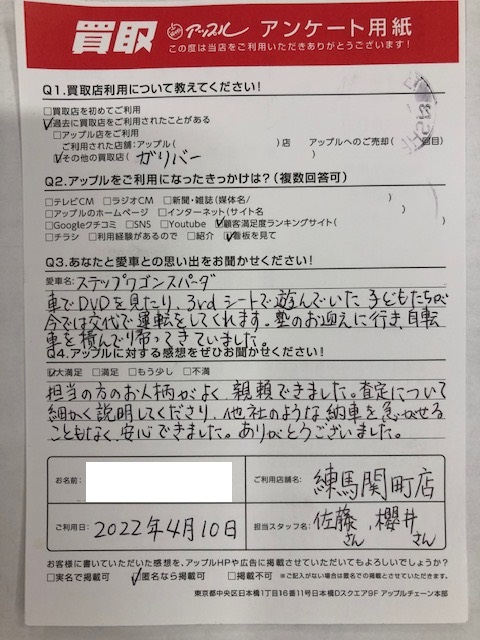 買取 アップル アンケート用紙
この度は当店をご利用いただきありがとうございます!
Q1.買取店利用について教えてください!
□買取店を初めてご利用
☑過去に買取店をご利用されたことがある
□アップル店をご利用
ご利用された店舗:アップル( )店 アップルへのご売却( 回目)
☑その他の買取店( ガリバー )
Q2.アップルをご利用になったきっかけは?(複数回答可)
□テレビCM □ラジオCM □新聞・雑誌(媒体名/ )
□アップルのホームページ □インターネット(サイト名 )
□Googleクチコミ □SNS □Youtube ☑顧客満足度ランキングサイト( )
□チラシ □利用経験があるので □紹介 ☑看板を見て
Q3.あなたと愛車との思い出をお聞かせください!
愛車名:ステップワゴンスパーダ
車でDVDを見たり、3rdシートで遊んでいた子どもたちが
今では交代で運転をしてくれます。塾のお迎えに行き、自転
車を積んで帰ってきていました。
Q4.アップルに対する感想をぜひお聞かせください!
☑大満足 □満足 □もう少し □不満
担当の方のお人柄がよく、親頼できました。査定について
細かく説明してくださり、他社のような納車を急がせる
こともなく、安心できました。ありがとうございました。
お名前:
ご利用店舗名: 練馬関町店
ご利用日: 2022年4月10日
担当スタッフ名: 佐藤さん 櫻井さん
お客様に書いていただいた感想を、アップルHPや広告に掲載させていただいてもよろしいでしょうか?
□実名で掲載可 ☑匿名なら掲載可 □掲載不可 ※ご記入がない場合は匿名での掲載とさせていただきます。
東京都中央区日本橋1丁目16番11号日本橋Dスクエア9F アップルチェーン本部